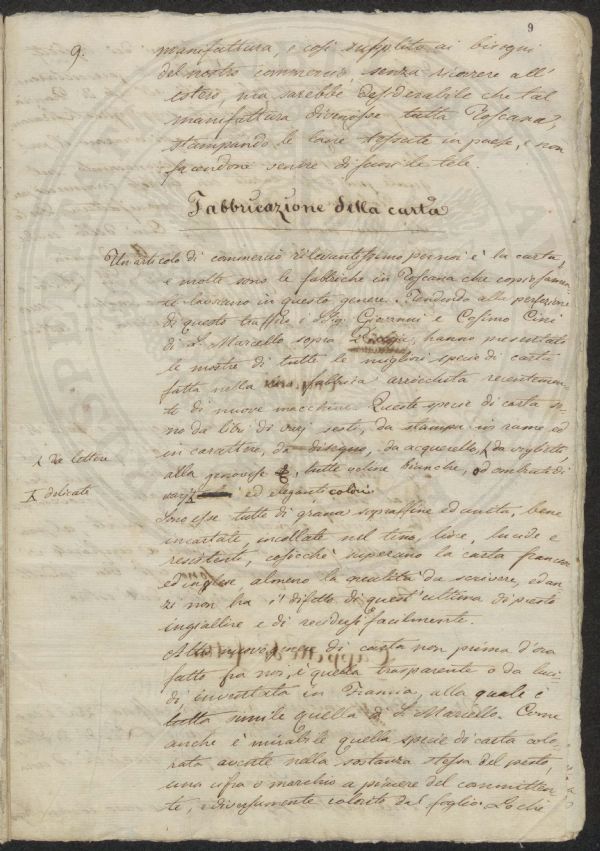 9
9.
manifattura e così supplito ai bisogni
del nostro commercio, senza ricorrere all'
estero, ma sarebbe desiderabile che tal
manifattura divenisse tutta Toscana,
stampando le lane tessute in paese, e non
facendone venire di fuori le tele.
Fabbricazione della carta
Un articolo di commercio rilevantissimo per noi è la carta,
e molte sono le fabbriche in Toscana che copiosamen
te lavorano in questo genere. Tendendo alla perfezione
di questo traffico i Sigg. Giovanni e Cosimo Cini
di S. Marcello sopra hanno presentato
le mostre di tutte le migliori specie di carta
fatta nella loro fabbrica arricchita recentemen
te di nuove macchine. Queste specie di carta so
no da libri di varj sesti, da stampa in rame ed
in carattere, da disegno, da acquerello, da viglietti,
X da lettere
alla genovese, tutte veline bianche, od ombrate di
X delicate
varj ed eleganti colori
Sono esse tutte di grana sopraffine ed unita, bene
incartate, incollate nel tino, lisce, lucide e
resistenti, cosicchè superano la carta francese
ed inglese almeno la qualità da scrivere, ed an
zi non ha il difetto di quest'ultima di presto
ingiallire e di recidersi facilmente.
Altro nuovo genere di carta non prima d'ora
fatto fra noi, è quella trasparente o da luci
di inventata in Francia, alla quale è
tutta simile quella di S. Marcello. Come
anche è mirabile quella specie di carta colo
rata avente nella sostanza stessa del pesto,
una cifra o marchio a piacere del committen
te, diversamente colorito dal foglio. Lo che